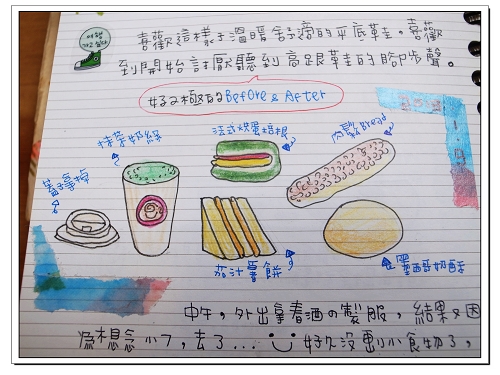 喜歡這樣子溫暖舒適的平底鞋。喜歡
到開始討厭聽到高跟鞋的腳步聲。
好2極的Before & After
抹茶奶綠
法式炊蛋培根
肉鬆Bread
茄汁薯餅
墨西哥奶酥
中午,外出拿春酒の製服,結果又因
為想念小7,去了...
好久沒到小食物了,